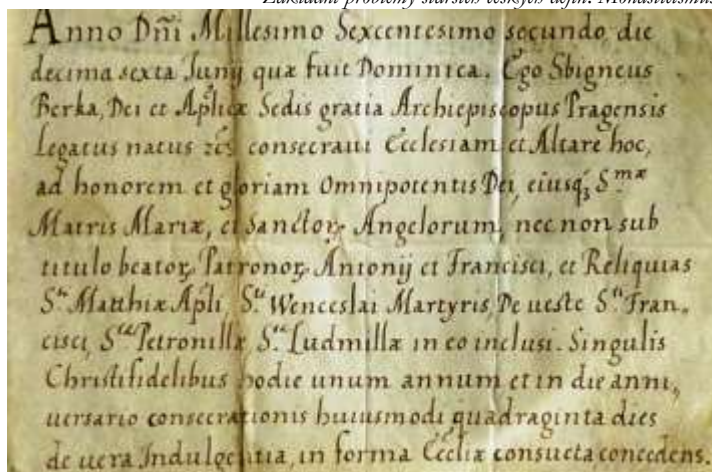 Základní problémy starších českých dějin. Monasticismus
Anno Dñi Millesimo Sexcentesimo secundo, die
decima sexta Junij quæ fuit Dominica. Ego Sbigneus
Berka, Dei et Aplicæ Sedis gratia Archiepiscopus Pragensis
Legatus natus zc̃. consecraui Ecclesiam et Altare hoc,
ad honorem et gloriam Omnipotentis Dei, eiusq́ꝫ S.mæ
Matris Mariæ, et Sanctoꝝ Angelorum, nec non sub
titulo beatoꝝ Patronoꝝ Antonij et Francisci, et Reliquias
S.ti Matthiæ Apli, S.ti Wenceslai Martyris, De ueste S.ti Fran„
cisci, S.tæ Petronillæ, S.tæ Ludmillæ in eo inclusi. Singulis
Christifidelibus hodie unum annum et in die anni„
uersario consecrationis huiusmodi quadraginta dies
de uera Indulgentia, in forma Eccliæ consueta concedens.